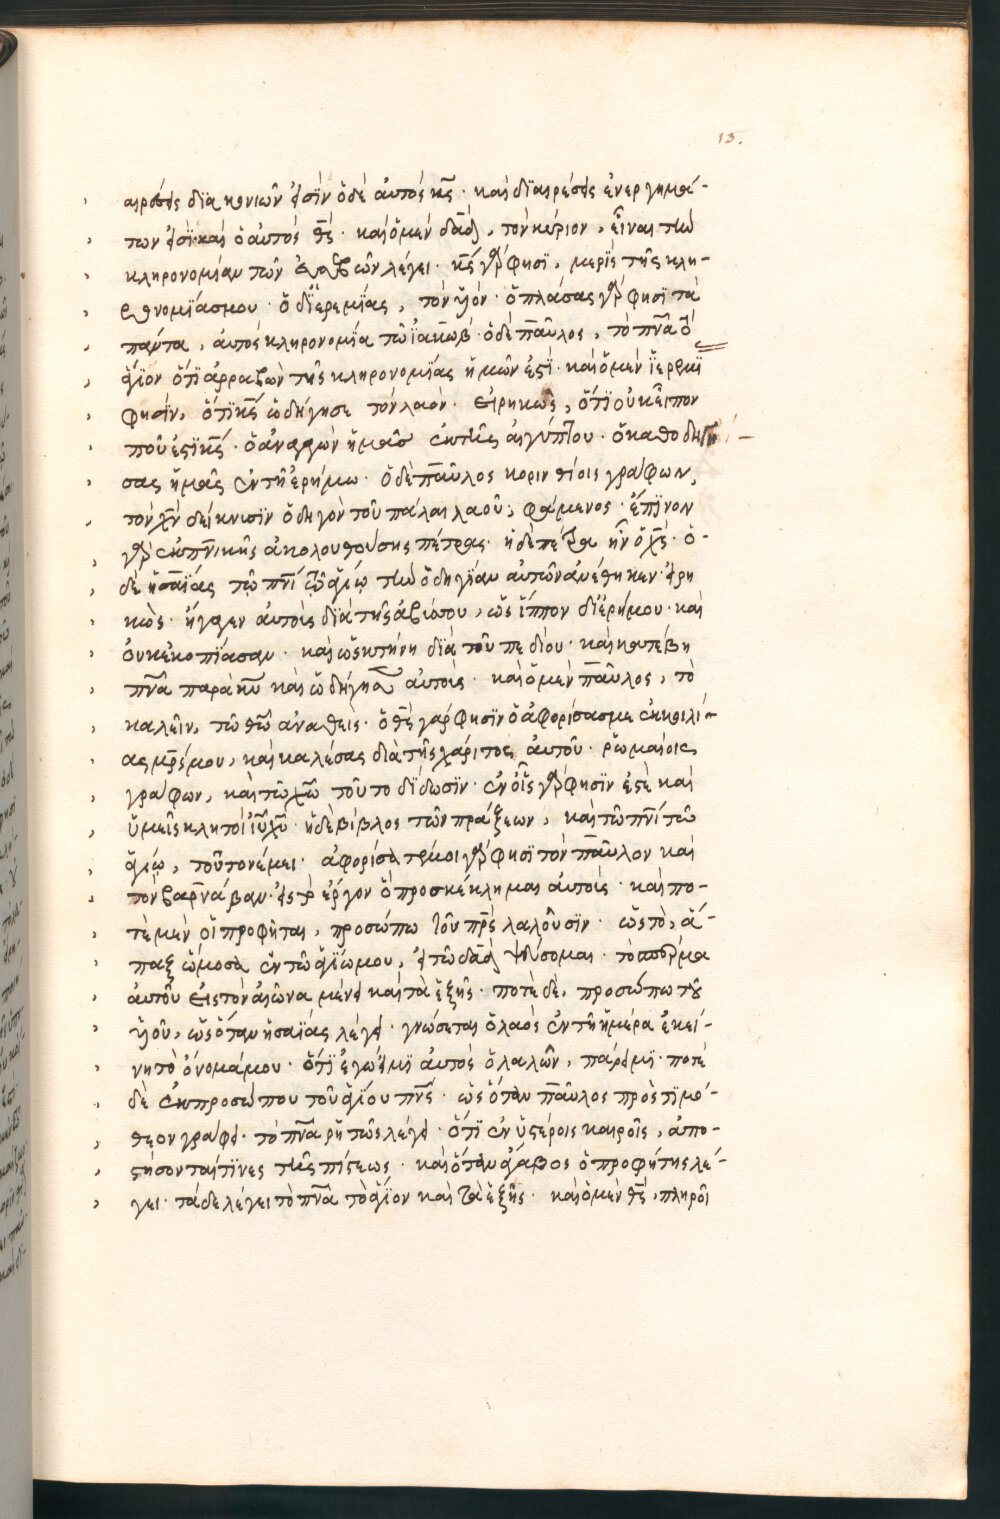 13.
αιρέσεις διακονιῶν εἰσὶν ὁ δὲ αὐτὸς κς̄· καὶ διαιρέσεις ἐνεργημά-
των εἰσὶ καὶ ὁ αὐτὸς θς̄· καὶ ὁ μὲν δᾱδ, τὸν κύριον, εἶναι τὴν
κληρονομίαν τῶν λέγει· κς̄ γάρ φησι, μερὶς τῆς κλη-
ρονομίας μου· ὁ δὲ ἱερεμίας, τὸν υἱόν· ὁ πλάσας γάρ φησι τὰ
πάντα, αὐτὸς κληρονομία τῶ ἰακώβ· ὁ δὲ παῦλος, τὸ πνᾱ τὸ
ἅγιον ὅτι ἀρραβὼν τῆς κληρονομίας ἡμῶν ἐστί· καὶ ὁ μὲν ἱερεμί
φησὶν, ὅτι κς̄ ὡδήγησε τὸν λαόν· εἰρηκὼς, ὅτι οὐκ εἶπον
ποῦ ἐστι κς̄· ὁ ἀναγαγὼν ἡμᾶς ἐκ τῆς αἰγύπτου· ὁ καθοδηγή-
σας ἡμᾶς ἐν τῆ ἐρήμω· ὁ δὲ παῦλος κορινθίοις γράφων,
τὸν χν̄ δείκνυσιν ὁδηγὸν τοῦ πάλαι λαοῦ, φάμενος· ἔπινον
γὰρ ἐκ πν̄ικῆς ἀκολουθούσης πέτρας· ἡ δὲ πέτρα ἦν ὁ χς̄· ὁ-
δὲ ἡσαΐας τῶ πνῑ τῶ ἁγίω τὴν ὁδηγίαν αὐτῶν ἀνέθηκεν· εἰρη
κὼς· ἤγαγεν αὐτοὺς διὰ τῆς ἀβύσσου, ὡς ἵππον δι' ἐρήμου· καὶ
οὐκ ἐκοπίασαν· καὶ ὡς κτήνη διὰ τοῦ πεδίου· καὶ κατέβη
πνᾱ παρὰ κῡ καὶ ὡδήγησεν αὐτούς· καὶ ὁ μὲν παῦλος, τὸ
καλεῖν, τῶ θῶ ἀναθείς· ὁ θς̄ γάρ φησιν ὁ ἀφορίσας με ἐκ κοιλί-
ας μρ̄ς μου, καὶ καλέσας διὰ τῆς χάριτος αὐτοῦ· ῥωμαίοις
γράφων, καὶ τῶ χῶ τοῦτο δίδωσιν· ἐν οἷς γάρ φησιν ἐστὲ καὶ
ὑμεῖς κλητοὶ ἰῦ χῡ· ἡ δὲ βίβλος τῶν πράξεων, καὶ τῶ πνῑ τῶ
ἁγίω, τοῦτο νέμει· ἀφορίσατέ μοι γάρ φησι τὸν παῦλον καὶ
τὸν βαρνάβαν· εἰς τὸ ἔργον ὃ προσκέκλημαι αὐτούς· καὶ πο-
τὲ μὲν οἱ προφῆται, προσώπω τοῦ πρ̄ς λαλοῦσιν· ὡς τὸ, ἅ-
παξ ὤμοσα ἐν τῶ ἁγίω μου, εἰ τῶ δᾱδ ψεύσομαι· τὸ σπέρμα
αὐτοῦ εἰς τὸν αἰῶνα μένει καὶ τὰ ἑξῆς· ποτὲ δὲ, προσώπω τοῦ
υἱοῦ, ὡς ὅταν ἡσαΐας λέγει· γνώσεται ὁ λαὸς ἐν τῆ ἡμέρα ἐκεί-
νη τὸ ὄνομά μου· ὅτι ἐγώ εἰμι αὐτὸς ὁ λαλῶν, πάρειμι· ποτὲ
δὲ ἐκ προσώπου τοῦ ἁγίου πνς̄· ὡς ὅταν παῦλος πρὸς τιμό-
θεον γράφει· τὸ πνᾱ ῥητῶς λέγει· ὅτι ἐν ὑστέροις καιροῖς, ἀπο-
στήσονταί τινες τῆς πίστεως· καὶ ὅταν ἄγαβος ὁ προφήτης λέ-
γει· τάδε λέγει τὸ πνᾱ τὸ ἅγιον καὶ τὰ ἑξῆς· καὶ ὁ μὲν θς̄, πληροῖ